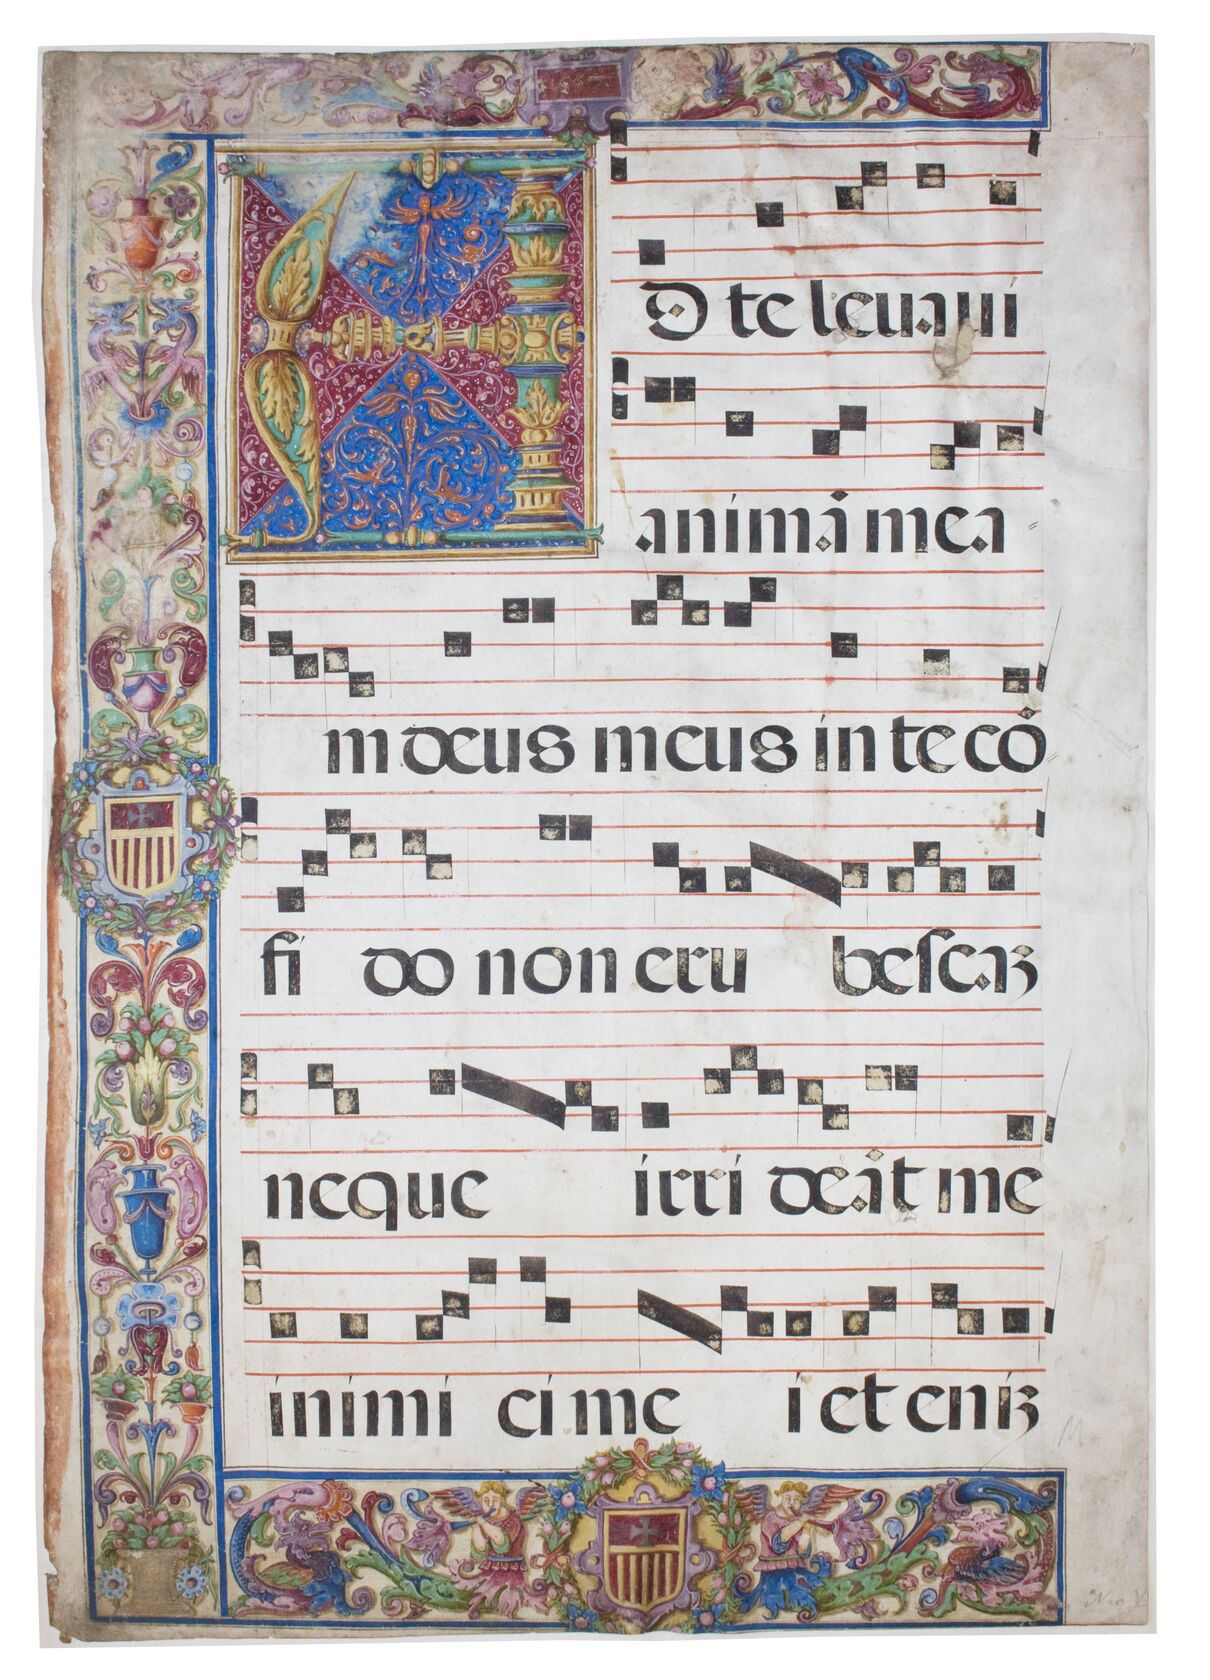 AD te leuaui
animā mea⸗
m deus meus in te cō
fi do non eru beſcaꝫ
neque irri deāt me
inimi ci me i et eniꝫ